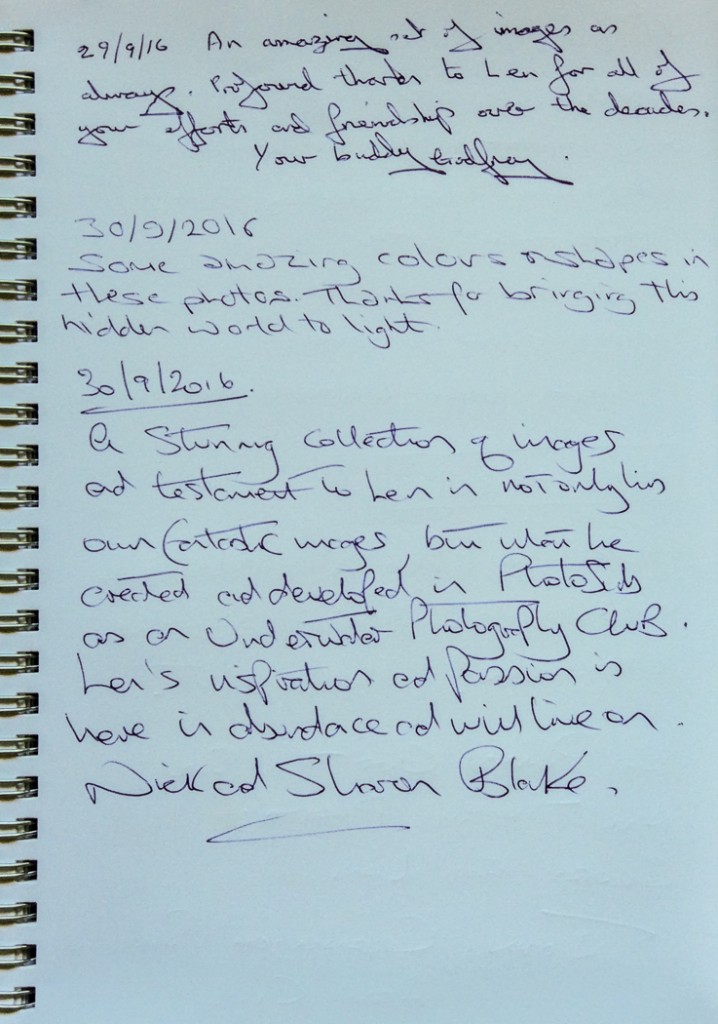 29/9/16 An amazing set of images as
always. Profound thanks to Len for all of
your efforts and friendship over the decades.
Your buddy Godfrey.
30/9/2016
Some amazing colours & shapes in
these photos. Thanks for bringing this
hidden world to light.
30/9/2016.
A Stunning Collection of images
and testament to Len in not only his
own fantastic images, but what he
created and developed in
as an Underwater Photography Club.
Len's inspiration and passion is
here in abundance and will live on.
Nick and Sharon Blake.